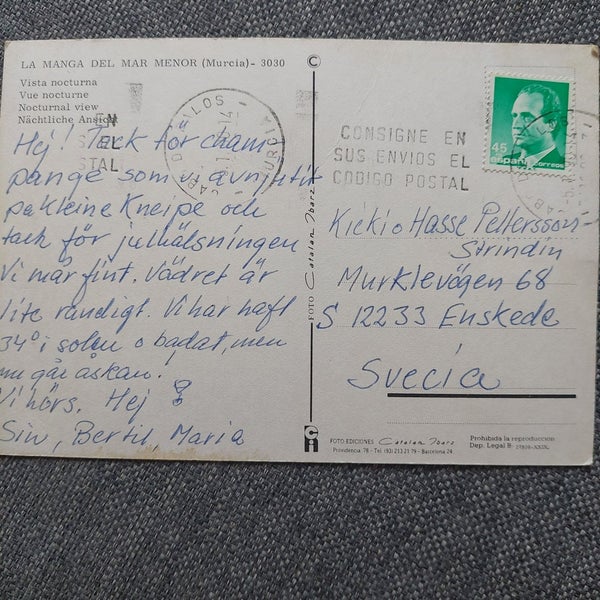 LA MANGA DEL MAR MENOR (Murcia)- 3030
Vista nocturna
Vue nocturne
Nocturnal view
Nächtliche Ansicht
Hej! Tack för cham
pange som vi avnjutit
på kleine Kneipe och
tack för julhälsningen
Vi mår fint. Vädret är
lite randigt. Vi har haft
34° i solen o badat, men
nu går åskan.
Vi hörs. Hej
Siw, Bertil, Maria
CONSIGNE EN
SUS ENVIOS EL
CODIGO POSTAL
45
españa CORREOS
Kicki o Hasse Pettersson-
Strindin
Murklevägen 68
S 12233 Enskede
Svecia
FOTO Catalan Ibarz
FOTO EDICIONES Catalan Ibarz
Providencia 78 - Tel. (93) 213 21 79 - Barcelona 24
Prohibida la reproducción
Dep. Legal B-